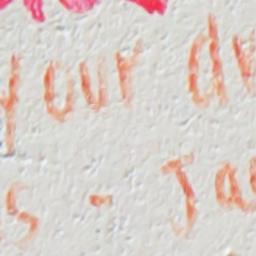 your
s - Ja